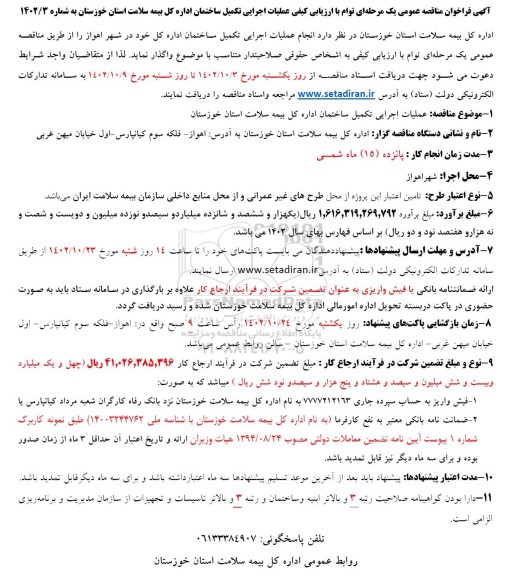 آگهی فراخوان مناقصه عمومی یک مرحله‌ای توام با ارزیابی کیفی عملیات اجرایی تکمیل ساختمان اداره کل بیمه سلامت استان خوزستان به شماره ۱۴۰۲/۳
اداره کل بیمه سلامت استان خوزستان در نظر دارد انجام عملیات اجرایی تکمیل ساختمان اداره کل خود در شهر اهواز را از طریق مناقصه
عمومی یک مرحله‌ای توام با ارزیابی کیفی به اشخاص حقوقی صلاحیتدار متناسب با موضوع واگذار نماید. لذا از متقاضیان واجد شرایط
دعوت می شود جهت دریافت اسناد مناقصه از روز یکشنبه مورخ ۱۴۰۲/۱۰/۳ تا روز شنبه مورخ ۱۴۰۲/۱۰/۹ به سامانه تدارکات
الکترونیکی دولت (ستاد) به آدرس www.setadiran.ir مراجعه واسناد مناقصه را دریافت نمایند.
۱-موضوع مناقصه: عملیات اجرایی تکمیل ساختمان اداره کل بیمه سلامت استان خوزستان
۲-نام و نشانی دستگاه مناقصه گزار: اداره کل بیمه سلامت استان خوزستان به آدرس: اهواز- فلکه سوم کیانپارس-اول خیابان میهن غربی
۳-مدت زمان انجام کار : پانزده (۱۵) ماه شمسی
۴-محل اجرا: شهراهواز
۵-نوع اعتبار طرح: تامین اعتبار این پروژه از محل طرح های غیر عمرانی و از محل منابع داخلی سازمان بیمه سلامت ایران می‌باشد.
۶-مبلغ برآورد: مبلغ برآورد ۱,۶۱۶,۳۱۹,۲۶۹,۷۹۲ ریال(یکهزار و ششصد و شانزده میلیاردو سیصدو نوزده میلیون و دویست و شصت و
نه هزارو هفتصد نود و دو ریال) بر اساس فهارس بهای سال ۱۴۰۲ می باشد.
۷-آدرس و مهلت ارسال پیشنهادها :پیشنهاددهندگان می بایست پاکت‌های خود را تا ساعت ۱۴ روز شنبه مورخ ۱۴۰۲/۱۰/۲۳ از طریق
سامانه تدارکات الکترونیکی دولت (ستاد) به آدرس www.setadiran.ir ارسال نمایند.
ارائه ضمانتنامه بانکی یا فیش واریزی به عنوان تضمین شرکت در فرآیند ارجاع کار علاوه بر بارگذاری در سامانه ستاد باید به صورت
حضوری در پاکت دربسته تحویل اداره امورمالی اداره کل بیمه سلامت خوزستان شده و رسید دریافت گردد.
۸-زمان بازگشایی پاکت‌های پیشنهاد: روز یکشنبه مورخ ۱۴۰۲/۱۰/۲۴ راس ساعت ۹ صبح واقع در: اهواز-فلکه سوم کیانپارس- اول
خیابان میهن غربی- اداره کل بیمه سلامت استان خوزستان - سالن روابط عمومی می‌باشد.
۹-نوع و مبلغ تضمین شرکت در فرآیند ارجاع کار : مبلغ تضمین شرکت در فرآیند ارجاع کار ۴۱,۰۲۶,۳۸۵,۳۹۶ ریال (چهل و یک میلیارد
وبیست و شش میلیون و سیصد و هشتاد و پنج هزار و سیصدو نود شش ریال ) میباشد که به صورت:
۱-فیش واریز به حساب سپرده جاری ۷۷۷۷۲۱۲۱۶۳ به نام اداره کل بیمه سلامت خوزستان نزد بانک رفاه کارگران شعبه مرداد کیانپارس یا
۲-ضمانت نامه بانکی معتبر به نفع کارفرما (به نام اداره کل بیمه سلامت خوزستان با شناسه ملی ۱۴۰۰۳۲۴۴۷۶۲) طبق نمونه کاربرگ
شماره ۱ پیوست آیین نامه تضمین معاملات دولتی مصوب ۱۳۹۴/۰۸/۲۴ هیات وزیران ارائه و تاریخ اعتبار آن حداقل ۳ ماه از زمان صدور
بوده و برای سه ماه دیگر نیز قابل تمدید باشد.
۱۰-مدت اعتبار پیشنهادها: پیشنهاد باید بعد از آخرین موعد تسلیم پیشنهادها سه ماه اعتبارداشته باشد و برای سه ماه دیگرقابل تمدید باشد.
۱۱-دارا بودن گواهینامه صلاحیت رتبه ۳ و بالاتر ابنیه وساختمان و رتبه ۳ و بالاتر تاسیسات و تجهیزات از سازمان مدیریت و برنامه‌ریزی
الزامی است.
تلفن پاسخگوئی: ۰۶۱۳۳۳۸۴۹۰۷
روابط عمومی اداره کل بیمه سلامت استان خوزستان